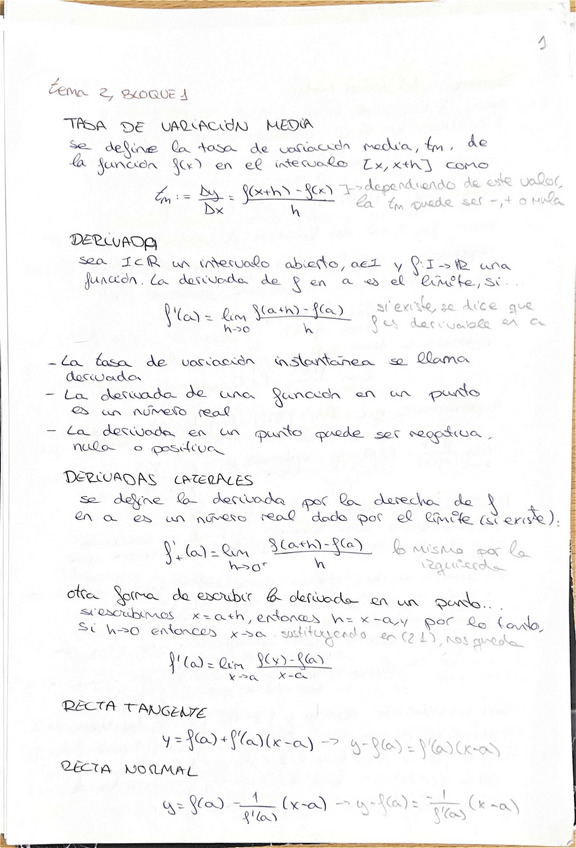 1
tema 2, BLOQUE 1
TASA DE VARIACIÓN MEDIA
se define la tasa de variación media, tm, de
la función f(x) en el intervalo [x, x+h] como
tm := Δy/Δx = f(x+h) - f(x)/h ]→dependiendo de este valor,
la tm puede ser -,+ o nula
DERIVADA
sea I⊂ℝ un intervalo abierto, a∈I y f:I→ℝ una
función. La derivada de f en a es el límite, si...
f'(a) = lim h→0 f(a+h) - f(a)/h si existe, se dice que
f es derivable en a
- La tasa de variación instantánea se llama
derivada
- La derivada de una función en un punto
es un número real
- La derivada en un punto puede ser negativa,
nula o positiva
DERIVADAS LATERALES
se define la derivada por la derecha de f
en a es un número real dado por el límite (si existe):
f'+(a) = lim h→0+ f(a+h) - f(a)/h lo mismo por la
izquierda
otra forma de escribir la derivada en un punto...
si escribimos x=a+h, entonces h=x-a, y por lo tanto,
si h→0 entonces x→a. sustituyendo en (2.1), nos queda
f'(a) = lim x→a f(x) - f(a)/x-a
RECTA TANGENTE
y = f(a) + f'(a)(x-a) → y-f(a) = f'(a)(x-a)
RECTA NORMAL
y = f(a) - 1/f'(a) (x-a) → y-f(a) = -1/f'(a) (x-a)